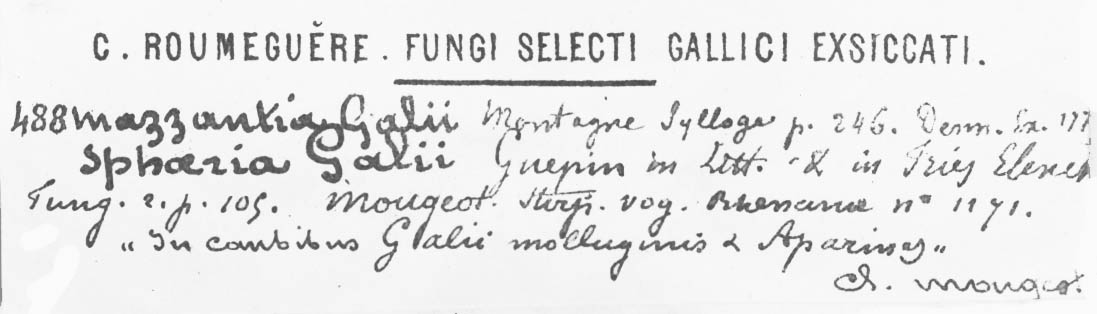 C. ROUMEGUÈRE. FUNGI SELECTI GALLICI EXSICCATI.
488 Mazzantia Galii Montagne Sylloge p. 246. Desm. Ex. 177
Sphæria Galii Guepin in Litt. & in Fries Elench
Fung. 2. p. 105. Mougeot. Stirp. Vog. Rhenanæ nº 1171.
„In caulibus Galii molluginis & Aparines„
A. Mougeot.